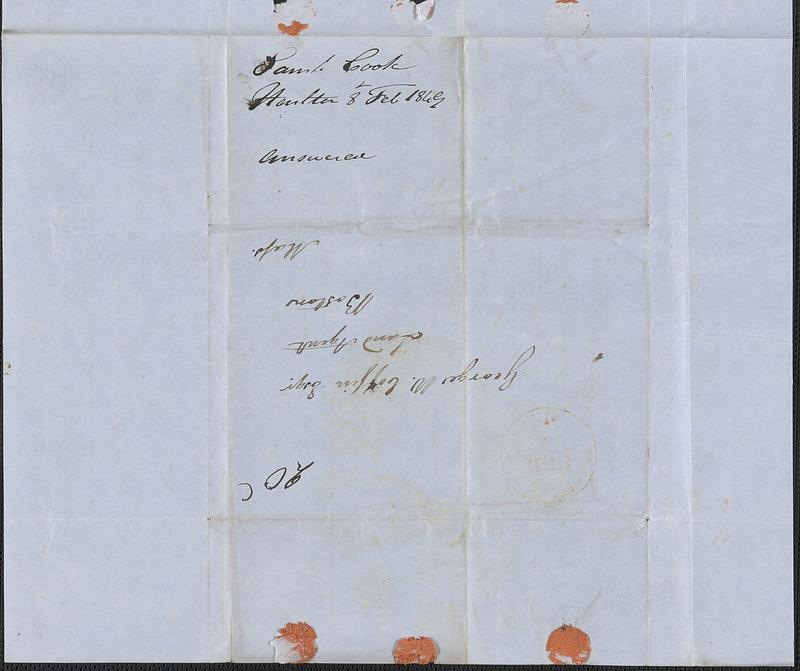 Saml. Cook
Houlton 8 Feb 1849
answered
George W. Coffin Esqr.
Land Agent
Boston
Mass.
FEB